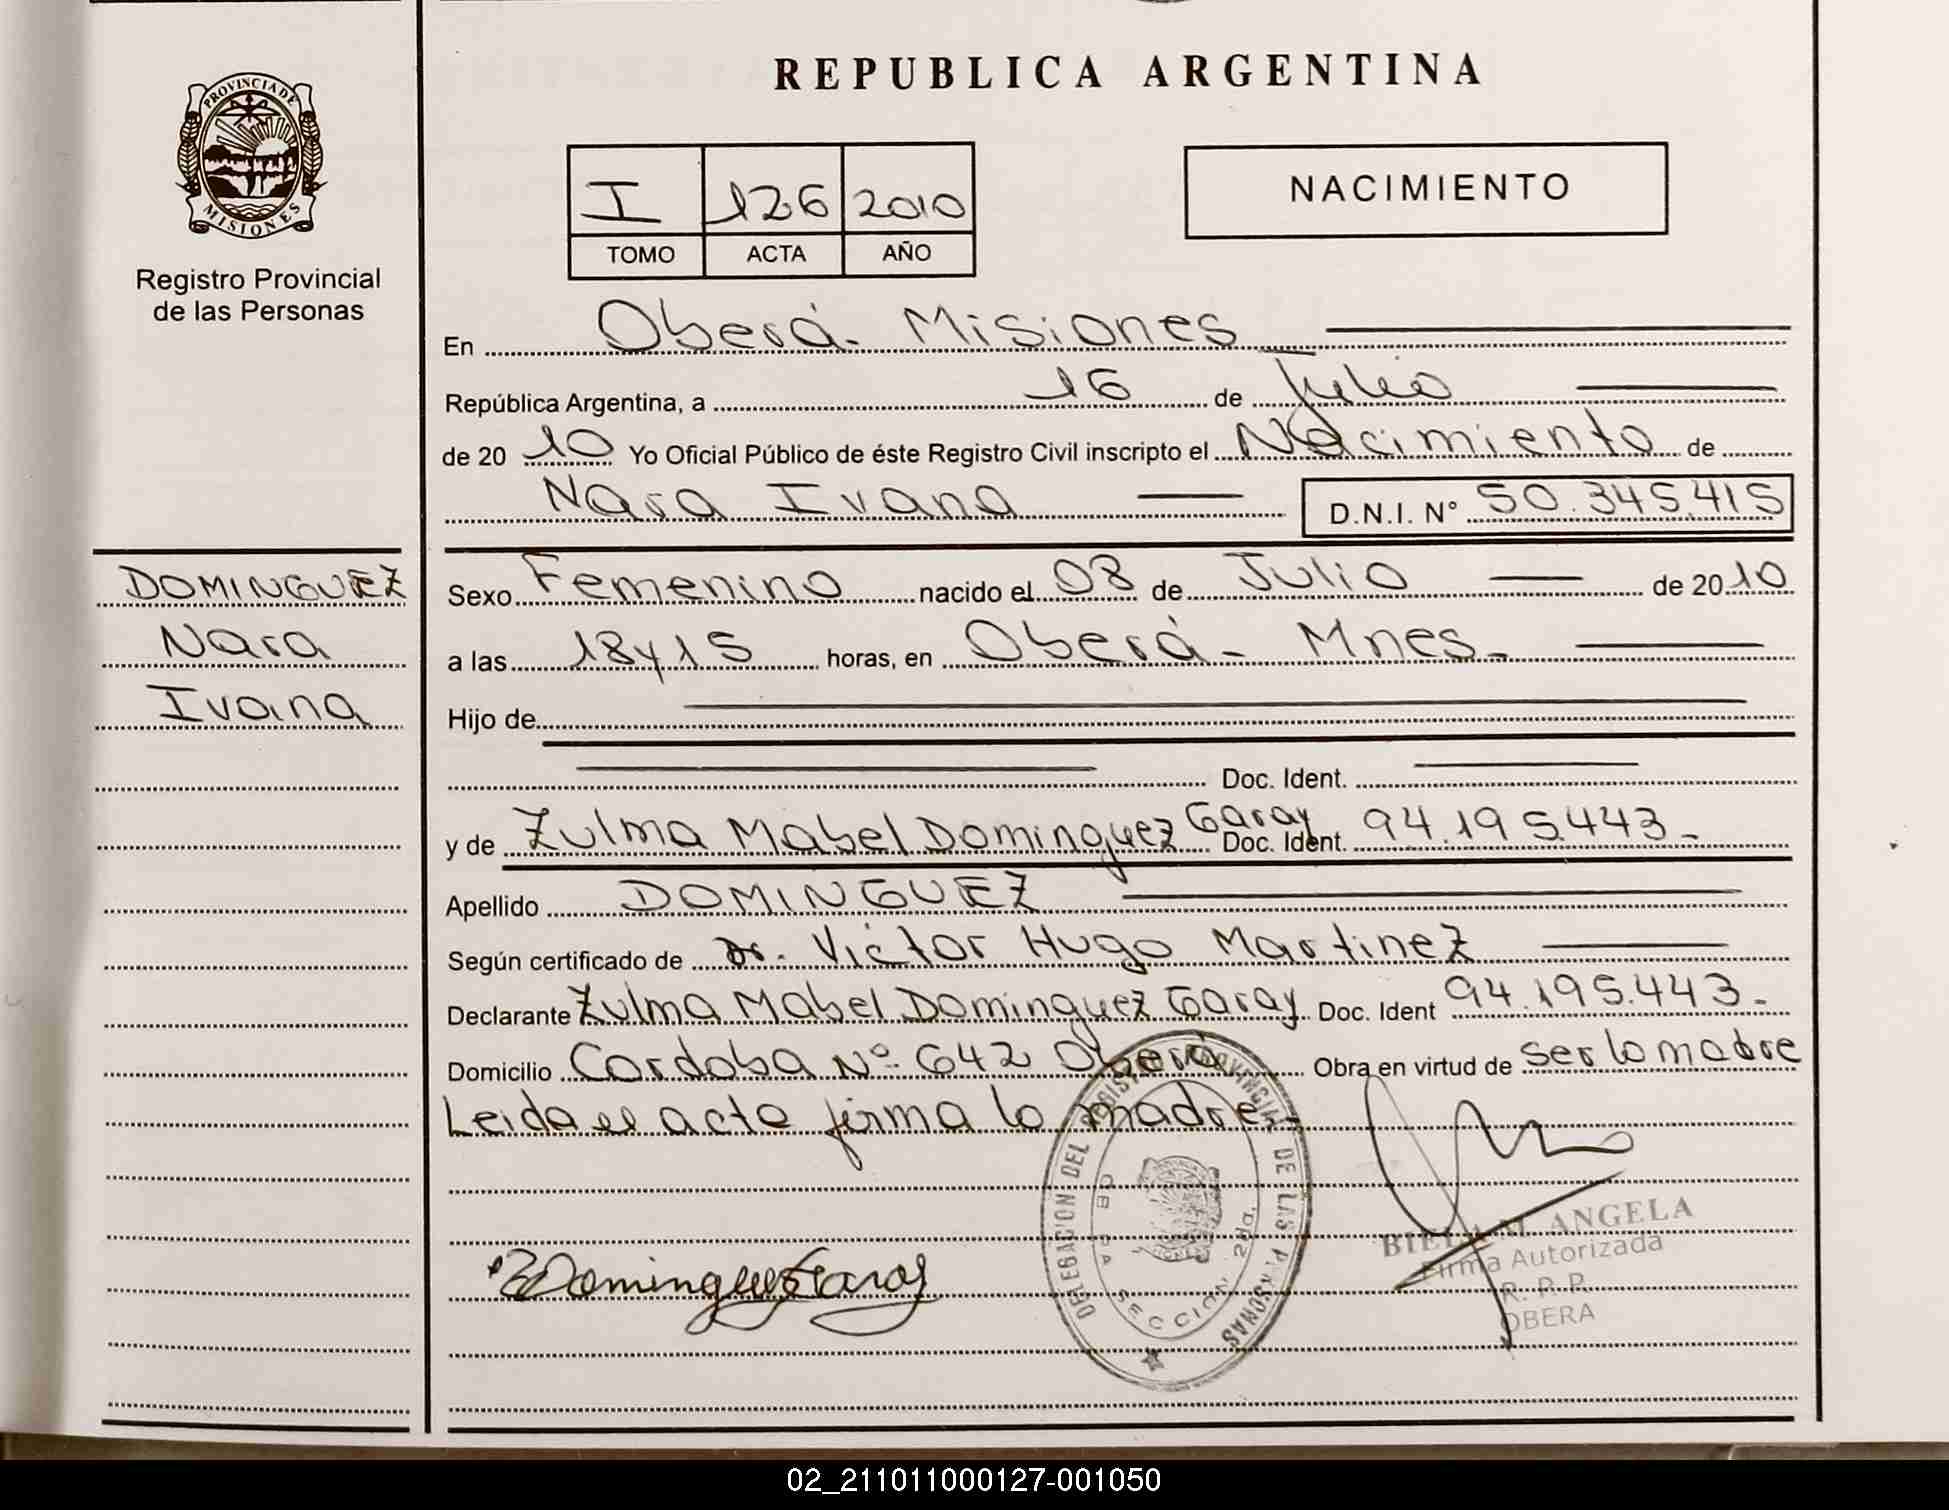 PROVINCIA DE
MISIONES
Registro Provincial
de las Personas
DOMINGUEZ
Nara
Ivana
REPUBLICA ARGENTINA
I 126 2010
TOMO ACTA AÑO
NACIMIENTO
En Oberá. Misiones
República Argentina, a 16 de Julio
de 2010 Yo Oficial Público de éste Registro Civil inscripto el Nacimiento de
Nara Ivana D.N.I. N° 50.345.415
Sexo Femenino nacido el 08 de Julio de 2010
a las 18y15 horas, en Oberá - Mnes.
Hijo de
Doc. Ident.
y de Zulma Mabel Dominguez Garay Doc. Ident. 94.195.443-
Apellido DOMINGUEZ
Según certificado de Dr. Victor Hugo Martinez
Declarante Zulma Mabel Dominguez Garay Doc. Ident 94.195.443-
Domicilio Cordoba Nº 642 Oberá Obra en virtud de ser la madre
Leida el acta firma la madre-
DELEGACION DEL REGISTRO PROVINCIAL DE LAS PERSONAS
OBERA SECCION 2da.
ZDominguezGaray
BIELA M. ANGELA
Firma Autorizada
R. P. P.
OBERA
02_211011000127-001050